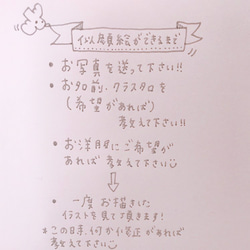 似顔絵ができるまで
• お写真を送って下さい!!
• お名前・クラスタロを
(希望があれば)
教えて下さい!!
• お洋服にご希望が
あれば教えて下さい
↓
• 一度お描きした
イラストを見て頂きます!
*この時、何か修正があれば
教えて下さい